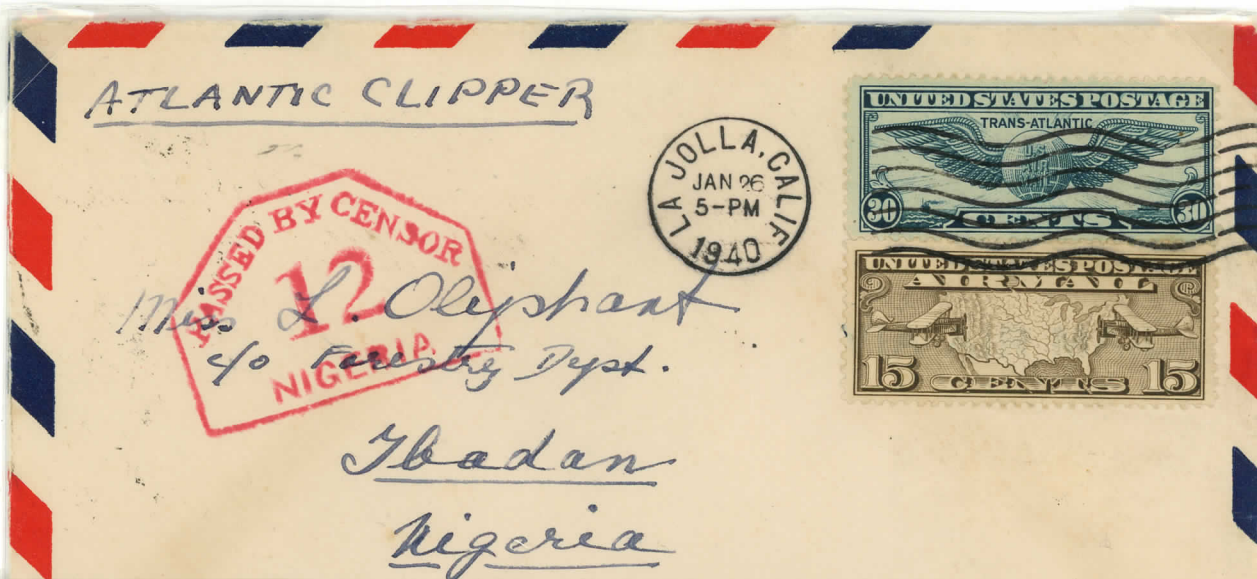 ATLANTIC CLIPPER
LA JOLLA, CALIF.
JAN 26
5-PM
1940
UNITED STATES POSTAGE
TRANS-ATLANTIC
U.S.
30 CENTS 30
UNITED STATES POSTAGE
AIR MAIL
15 CENTS 15
PASSED BY CENSOR
12
NIGERIA
Miss L. Oliphant
c/o Forestry Dept.
Ibadan
Nigeria